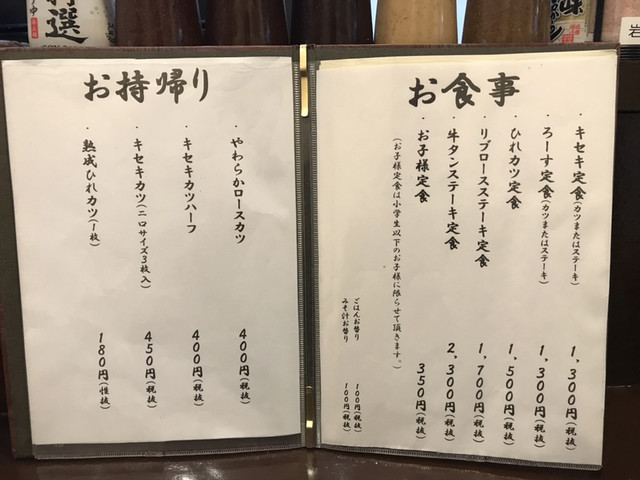 お食事
・キセキ定食(カツまたはステーキ) 1,300円(税抜)
・ろーす定食(カツまたはステーキ) 1,300円(税抜)
・ひれカツ定食 1,500円(税抜)
・リブロースステーキ定食 1,700円(税抜)
・牛タンステーキ定食 2,300円(税抜)
・お子様定食 350円(税抜)
(お子様定食は小学生以下のお子様に限らせて頂きます。)
ごはんお替り 100円(税抜)
みそ汁お替り 100円(税抜)
お持帰り
・やわらかロースカツ 400円(税抜)
・キセキカツハーフ 400円(税抜)
・キセキカツ(二口サイズ3枚入) 450円(税抜)
・熟成ひれカツ(1枚) 180円(性抜)
特選
味
岩